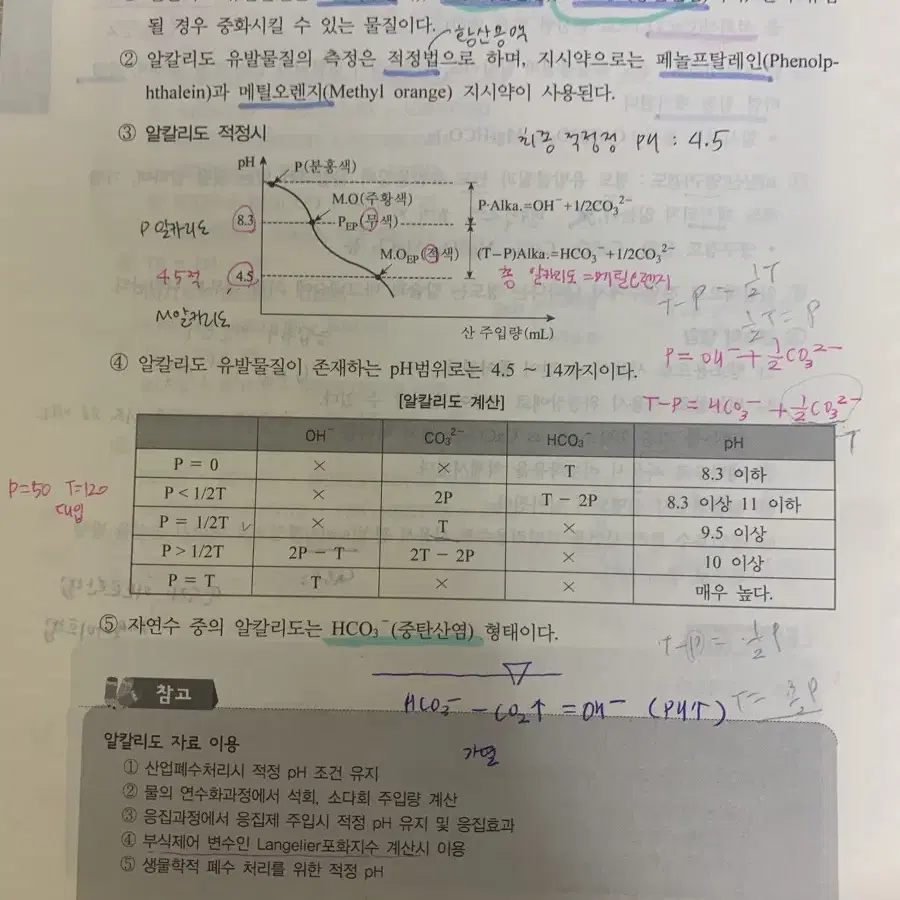 될 경우 중화시킬 수 있는 물질이다.
황산용액
② 알칼리도 유발물질의 측정은 적정법으로 하며, 지시약으로는 페놀프탈레인(Phenolp-
hthalein)과 메틸오렌지(Methyl orange) 지시약이 사용된다.
③ 알칼리도 적정시
최종 적정점 pH : 4.5
pH
P(분홍색)
M.O(주황색)
P·Alka.=OH⁻+1/2CO₃²⁻
8.3
P_EP(무색)
P 알카리도
M.O_EP(적색)
(T-P)Alka.=HCO₃⁻+1/2CO₃²⁻
총 알카리도 = 메틸오렌지
4.5적
4.5
T-P = 1/2T
M알카리도
1/2T = P
산 주입량(mL)
P = OH⁻ + 1/2CO₃²⁻
④ 알칼리도 유발물질이 존재하는 pH범위로는 4.5 ~ 14까지이다.
T-P = HCO₃⁻ + 1/2CO₃²⁻
T
[알칼리도 계산]
OH⁻ CO₃²⁻ HCO₃⁻ pH
P = 0 × × T 8.3 이하
P=50 T=120
대입
P < 1/2T × 2P T - 2P 8.3 이상 11 이하
P = 1/2T × T × 9.5 이상
P > 1/2T 2P - T 2T - 2P × 10 이상
P = T T × × 매우 높다.
⑤ 자연수 중의 알칼리도는 HCO₃⁻(중탄산염) 형태이다.
T-P = 1/2P
HCO₃⁻ - CO₂↑ = OH⁻ (PH↑)
T = 3/2P
가열
참고
알칼리도 자료 이용
① 산업폐수처리시 적정 pH 조건 유지
② 물의 연수화과정에서 석회, 소다회 주입량 계산
③ 응집과정에서 응집제 주입시 적정 pH 유지 및 응집효과
④ 부식제어 변수인 Langelier포화지수 계산시 이용
⑤ 생물학적 폐수 처리를 위한 적정 pH